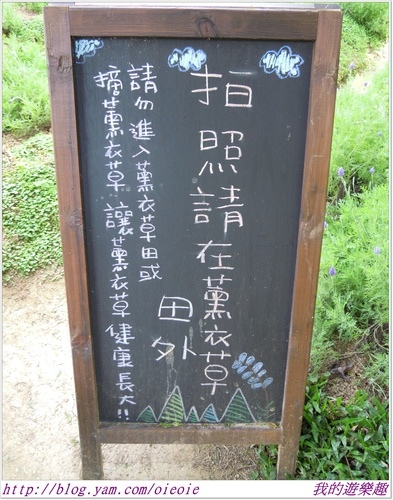 拍照請在薰衣草
田外
請勿進入薰衣草田或
摘薰衣草讓薰衣草健康長大!!
http://blog.yam.com/oieoie
我的遊樂趣